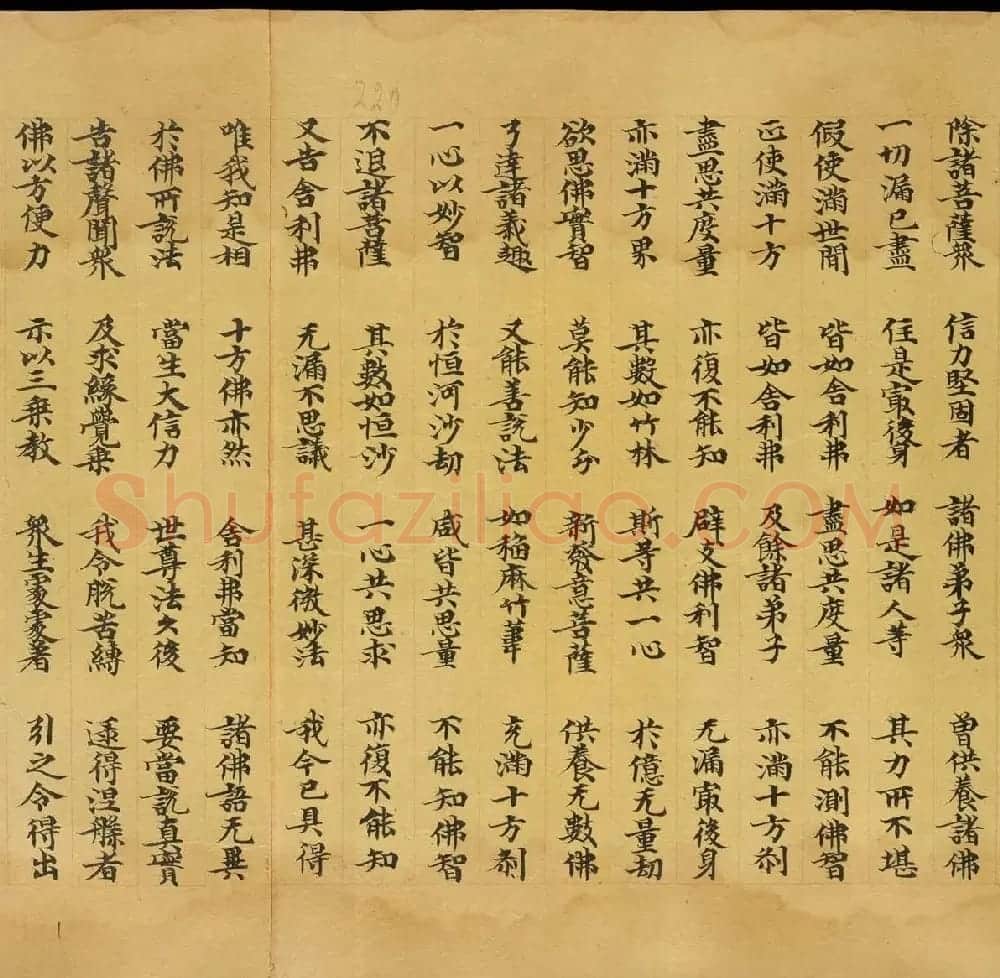 除諸菩薩衆 信力堅固者 諸佛弟子衆 曽供養諸佛
一切漏已盡 住是㝡後身 如是諸人等 其力所不堪
假使滿世間 皆如舍利弗 盡思共度量 不能測佛智
正使滿十方 皆如舍利弗 及餘諸弟子 亦滿十方刹
盡思共度量 亦復不能知 辟支佛利智 无漏㝡後身
亦滿十方界 其數如竹林 斯等共一心 於億无量劫
欲思佛實智 莫能知少分 新發意菩薩 供養无數佛
了達諸義趣 又能善說法 如稲麻竹葦 充滿十方刹
一心以妙智 於恒河沙劫 咸皆共思量 不能知佛智
不退諸菩薩 其數如恒沙 一心共思求 亦復不能知
又告舍利弗 无漏不思議 甚深微妙法 我今已具得
唯我知是相 十方佛亦然 舍利弗當知 諸佛語无異
於佛所說法 當生大信力 世尊法久後 要當說真實
告諸聲聞衆 及求緣覺乗 我令脫苦縛 逮得涅槃者
佛以方便力 示以三乗教 衆生處處著 引之令得出
220
Shufaziliao.COM